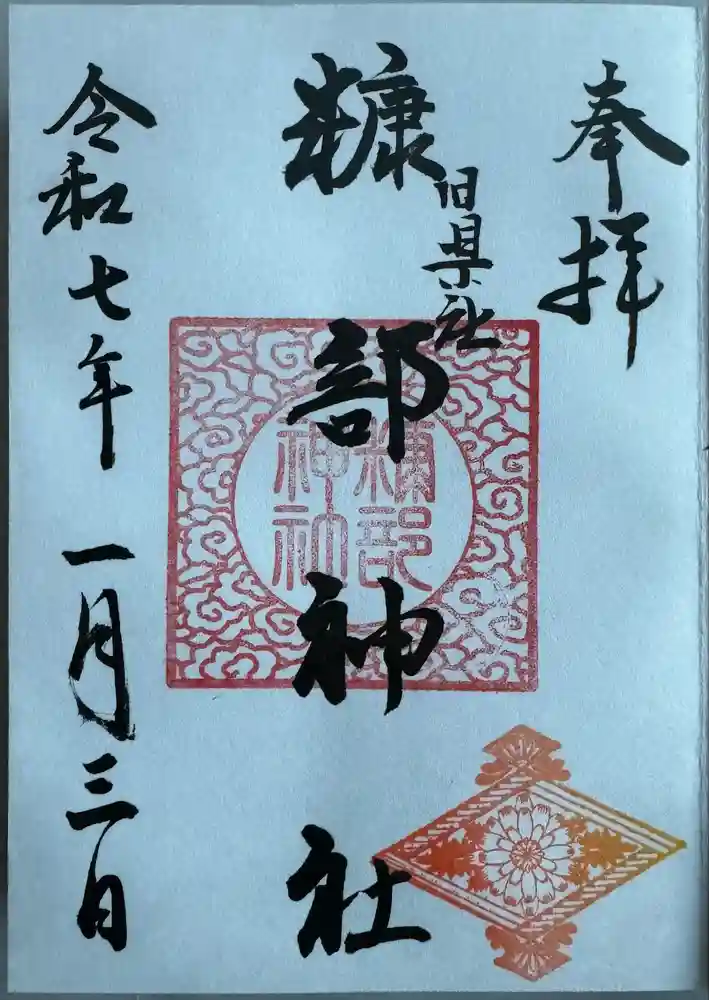 奉拝
旧県社
糠部神社
糠部
神社
令和七年一月三日